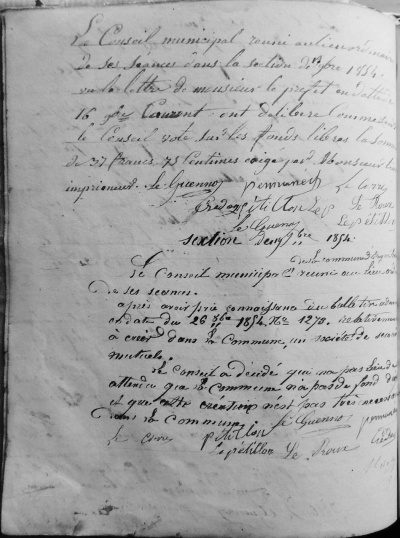 Le Conseil municipal reuni au lieu ordinaire
de ses seances dans la section de 9bre 1854.
vu la lettre de monsieur le prefet en date du
16 9bre Courent ont délibéré Comme
le Conseil vote sur les fonds libres la Somme
de 37 francs 75 Centimes exigé par Monsieur
imprimeur. Le Guennos permanech Le corre
pétillon Le p Le Roux
Le Guennos Le pétillon
section de 9bre 1854.
de la commune
Le Conseil municipal reunie au lieu
de ses seances.
après avoir prie connaissance du bulletin
en date du 26 8bre 1854. No 1270. relativement
à créer dans la Commune, un société de secours
mutuels.
Le Conseil a décidé qui na pas lieu
attendu que la Commune na pas de fond
et que cette création n'est pas très necessaire
dans la Commune. Le Guennos permanech
Le corre pétillon
Le pétillon Le Roux